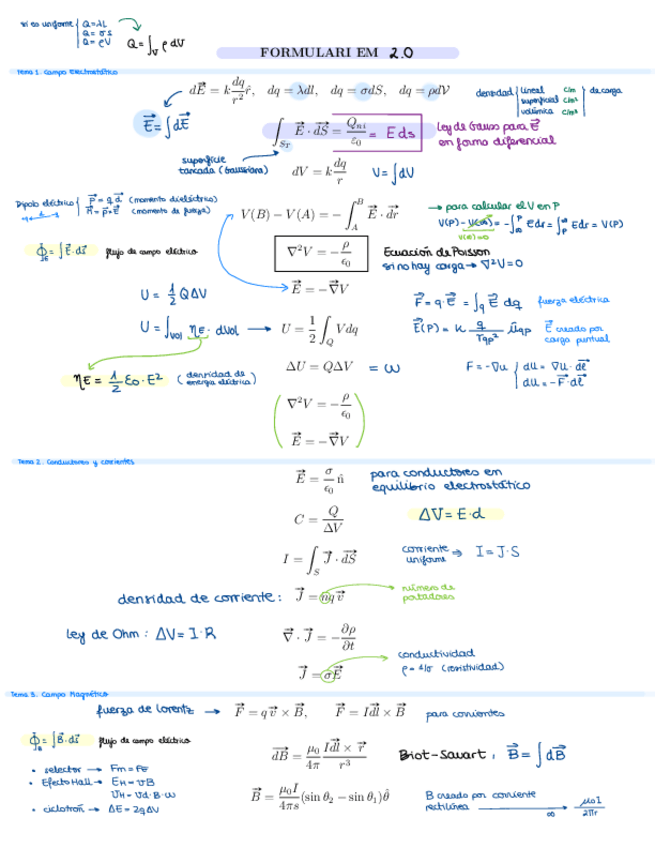 si es uniforme { Q = λL
Q = σS
Q = ρV
Q = ∫_V ρ dV
FORMULARI EM 2.0
Tema 1. Campo Electrostático
dE⃗ = k dq/r² r̂, dq = λdl, dq = σdS, dq = ρdV
densidad | lineal C/m
superficial C/m²
volúmica C/m³ | de carga
E⃗ = ∫dE⃗
∫_{S_T} E⃗ · dS⃗ = Q_ni/ε₀ = E dS
Ley de Gauss para E⃗
en forma diferencial
superficie
tancada (Gaussiana)
dV = k dq/r V = ∫dV
Dipolo eléctrico { p⃗ = q d⃗ (momento dieléctrico)
M⃗ = p⃗ × E⃗ (momento de fuerza)
V(B) − V(A) = − ∫_A^B E⃗ · dr⃗
→ para calcular el V en P
V(P) − V(∞) = −∫_∞^P E dr = ∫_P^∞ E dr = V(P)
V(∞)=0
Φ_E = ∫E⃗·dS⃗ flujo de campo eléctrico
∇²V = − ρ/ε₀
Ecuación de Poisson
si no hay carga → ∇²V = 0
E⃗ = −∇⃗V
U = 1/2 QΔV
F⃗ = q · E⃗ = ∫_q E⃗ dq fuerza eléctrica
U = ∫_vol η_E · dVol → U = 1/2 ∫_Q V dq
E⃗(P) = K q/r_qp² û_qp E⃗ creado por
carga puntual
η_E = 1/2 ε₀ · E² (densidad de
energía eléctrica)
ΔU = QΔV = W
F = −∇u { du = ∇u · dl⃗
du = −F⃗ · dl⃗
∇²V = − ρ/ε₀
E⃗ = −∇⃗V
Tema 2. Conductores y corrientes
E⃗ = σ/ε₀ n̂ para conductores en
equilibrio electrostático
C = Q/ΔV ΔV = E · d
I = ∫_S J⃗ · dS⃗ corriente
uniforme ⇒ I = J · S
densidad de corriente: J⃗ = nqv⃗ número de
portadores
Ley de Ohm: ΔV = I · R ∇⃗ · J⃗ = − ∂ρ/∂t
J⃗ = σE⃗ conductividad
ρ = 1/σ (resistividad)
Tema 3. Campo Magnético
fuerza de Lorentz → F⃗ = qv⃗ × B⃗, F⃗ = Idl⃗ × B⃗ para corrientes
Φ_B = ∫B⃗·dS⃗ flujo de campo eléctrico
dB⃗ = μ₀/4π Idl⃗ × r⃗/r³ Biot-Savart, B⃗ = ∫dB⃗
• selector → Fm = FE
• Efecto Hall → E_H = vB
U_H = Vd · B · w
• ciclotrón → ΔE = 2qΔV
B⃗ = μ₀I/4πs (sin θ₂ − sin θ₁)θ̂
B creado por corriente
rectilínea ∞ → μ₀I/2πr